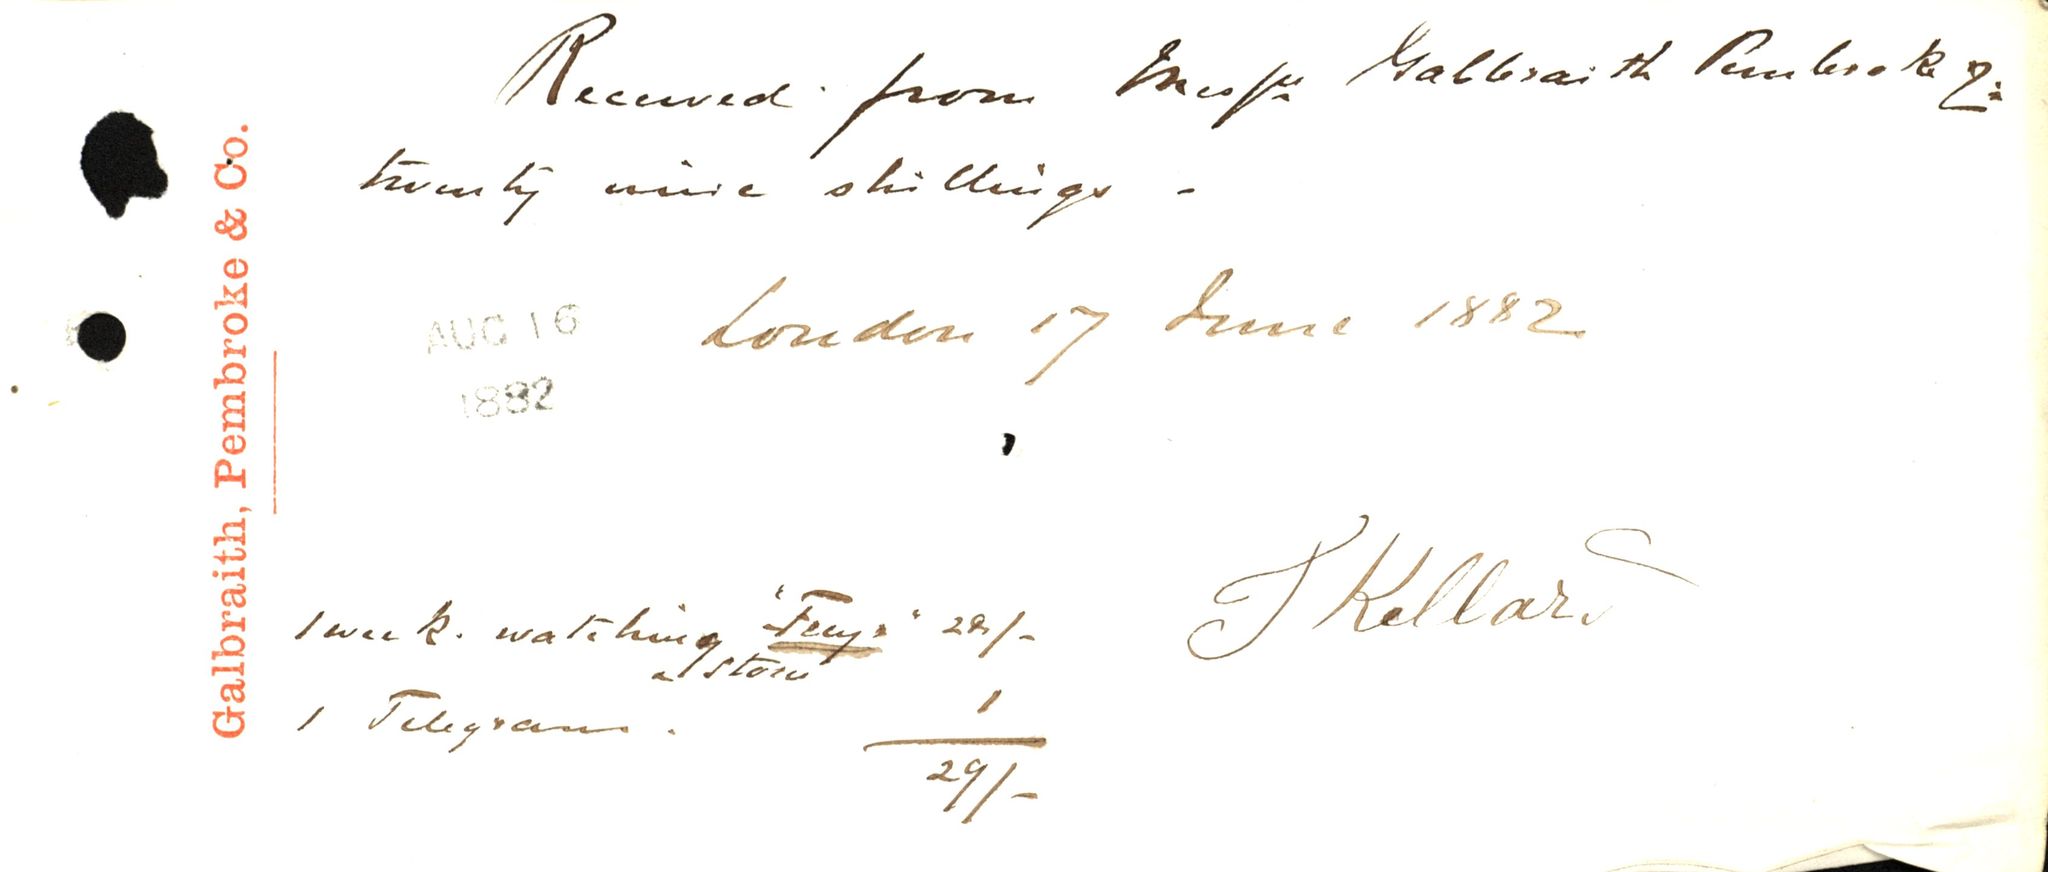 Galbraith, Pembroke & Co.
Received from Messrs Galbraith Pembroke & Co
twenty nine shillings -
London 17 June 1882
AUG 16
1882
1 week watching "Feuj" 28/-
store
1 Telegram. 1
29/-